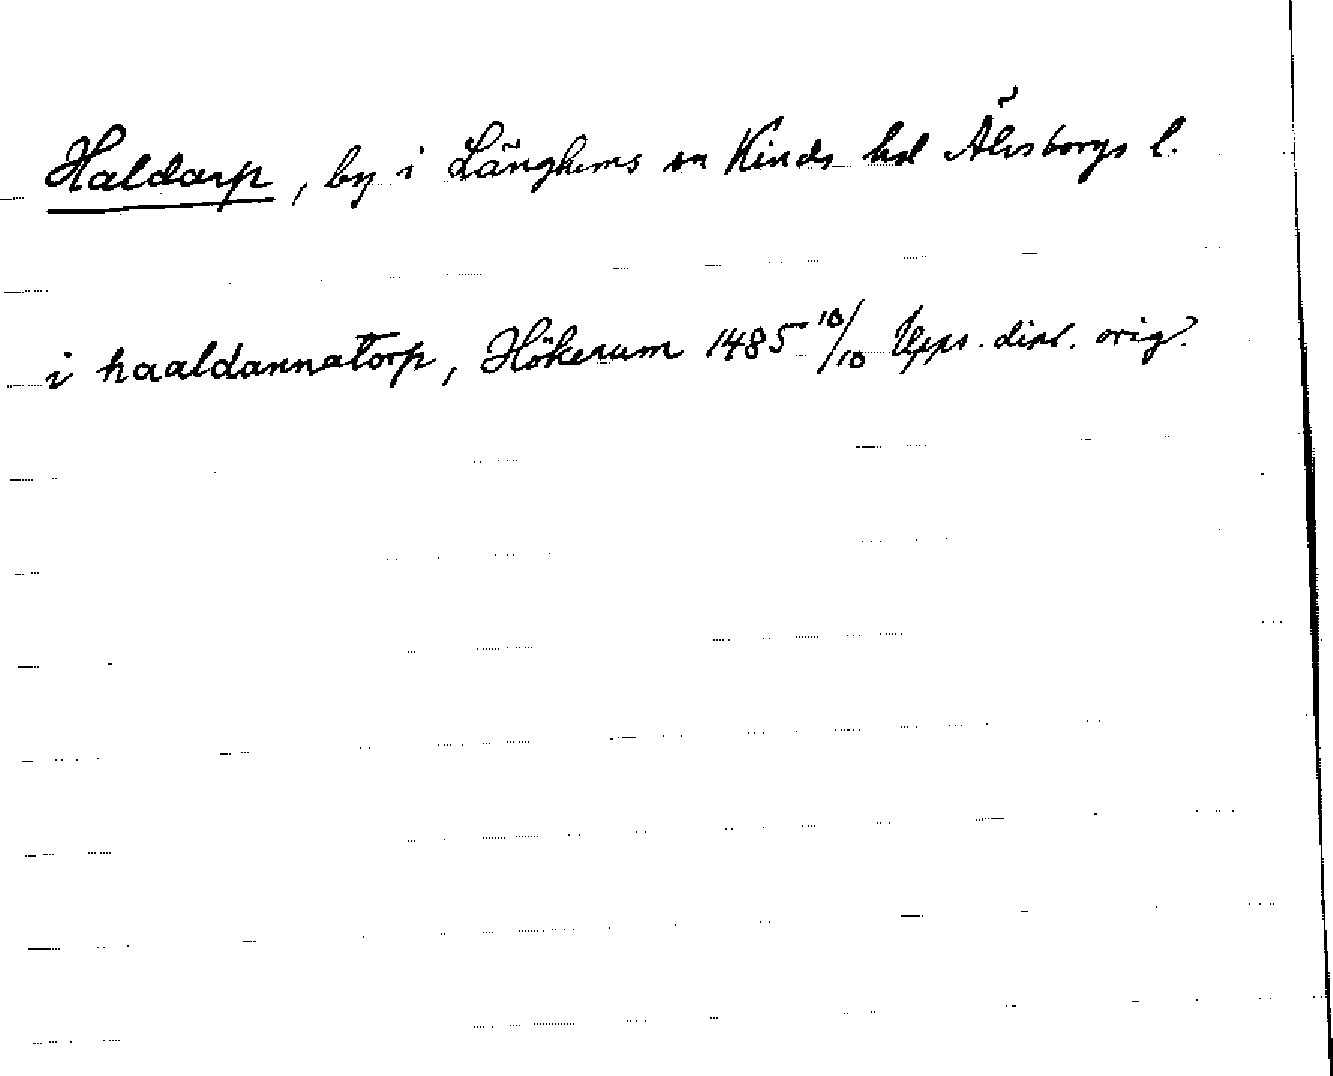 Haldarp, by i Länghems sn Kinds hd Älvsborgs l.
i haaldannatorp, Hökerum 1485 10/10 Upps. dipl. orig.